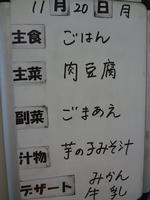 11月20日 月
主食 ごはん
主菜 肉豆腐
副菜 ごまあえ
汁物 芋の子みそ汁
デザート みかん
牛乳